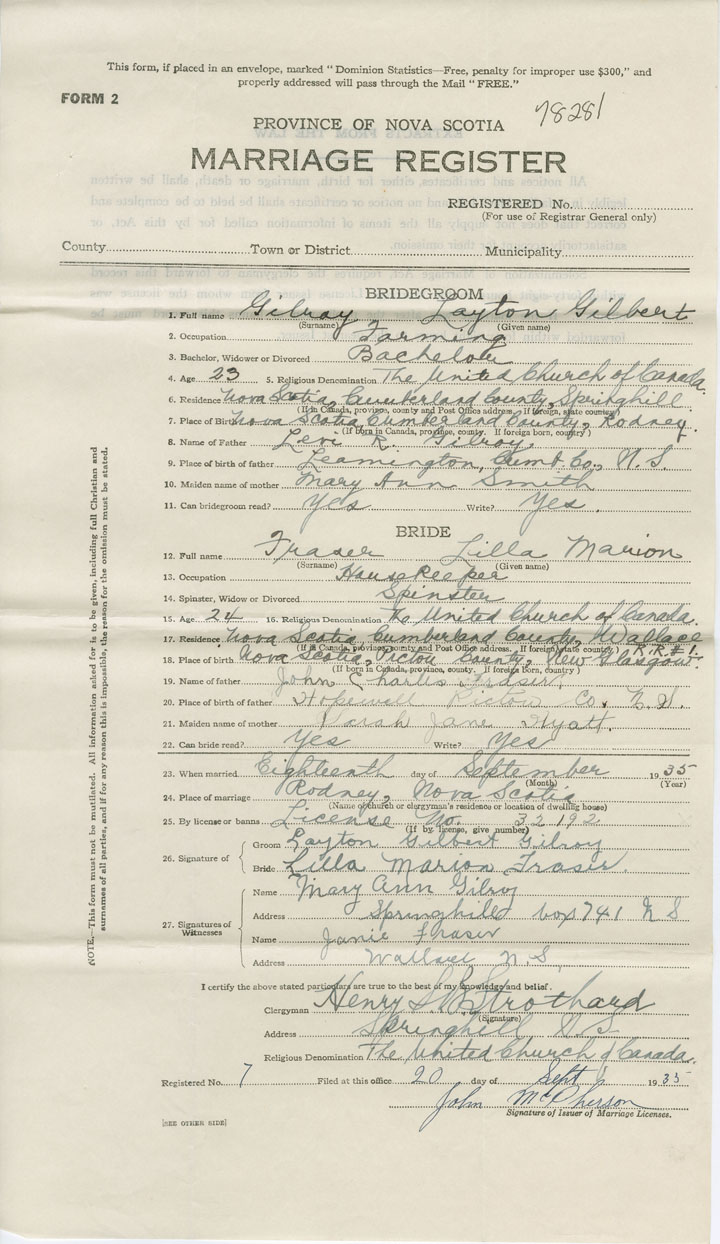 This form, if placed in an envelope, marked "Dominion Statistics—Free, penalty for improper use $300," and
properly addressed will pass through the Mail "FREE."
FORM 2
78281
PROVINCE OF NOVA SCOTIA
MARRIAGE REGISTER
REGISTERED No.
(For use of Registrar General only)
County Town or District Municipality
BRIDEGROOM
1. Full name Gilroy Layton Gilbert
(Surname) (Given name)
2. Occupation Farming
3. Bachelor, Widower or Divorced Bachelor
4. Age 23 5. Religious Denomination The United Church of Canada.
6. Residence Nova Scotia, Cumberland County, Springhill
(If in Canada, province, county and Post Office address. If foreign, state country)
7. Place of Birth Nova Scotia, Cumberland County, Rodney.
(If born in Canada, province, county. If foreign born, country)
8. Name of Father Levi R. Gilroy
9. Place of birth of father Leamington, Cumb. Co., N.S.
10. Maiden name of mother Mary Ann Smith
11. Can bridegroom read? Yes Write? Yes.
BRIDE
12. Full name Fraser Lilla Marion
(Surname) (Given name)
13. Occupation Housekeeper
14. Spinster, Widow or Divorced Spinster
15. Age 24 16. Religious Denomination The United Church of Canada.
17. Residence Nova Scotia, Cumberland County, Wallace
(If in Canada, province, county and Post Office address. If foreign, state country) R.R.#1.
18. Place of birth Nova Scotia, Pictou County, New Glasgow.
(If born in Canada, province, county. If foreign born, country)
19. Name of father John Charles Fraser
20. Place of birth of father Hopewell Pictou Co. N.S.
21. Maiden name of mother Sarah Jane Hyatt.
22. Can bride read? Yes Write? Yes
23. When married Eighteenth day of September 1935
(Month) (Year)
24. Place of marriage Rodney, Nova Scotia
(Name of church or clergyman's residence or location of dwelling house)
25. By license or banns License No. 32192
(If by license, give number)
26. Signature of
Groom Layton Gilbert Gilroy
Bride Lilla Marion Fraser.
27. Signatures of Witnesses
Name Mary Ann Gilroy
Address Springhill box 741 N S
Name Janie Fraser
Address Wallace N.S.
I certify the above stated particulars are true to the best of my knowledge and belief.
Clergyman Henry Strothard
(Signature)
Address Springhill N.S.
Religious Denomination The United Church of Canada.
Registered No. 7 Filed at this office 20 day of Sept 1935
John McPherson
Signature of Issuer of Marriage Licenses.
[SEE OTHER SIDE]
NOTE.—This form must not be mutilated. All information asked for is to be given, including full Christian and
surnames of all parties, and if for any reason this is impossible, the reason for the omission must be stated.